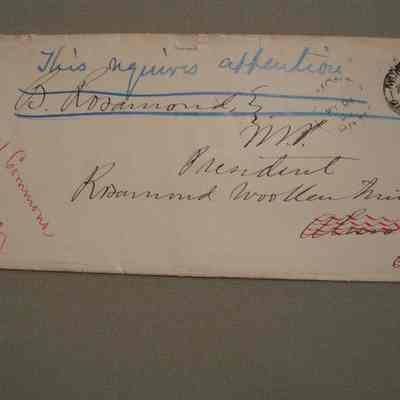 This requires attention
B. Rosamond, Esq
M.P.
President
Rosamond Woollen
Commons